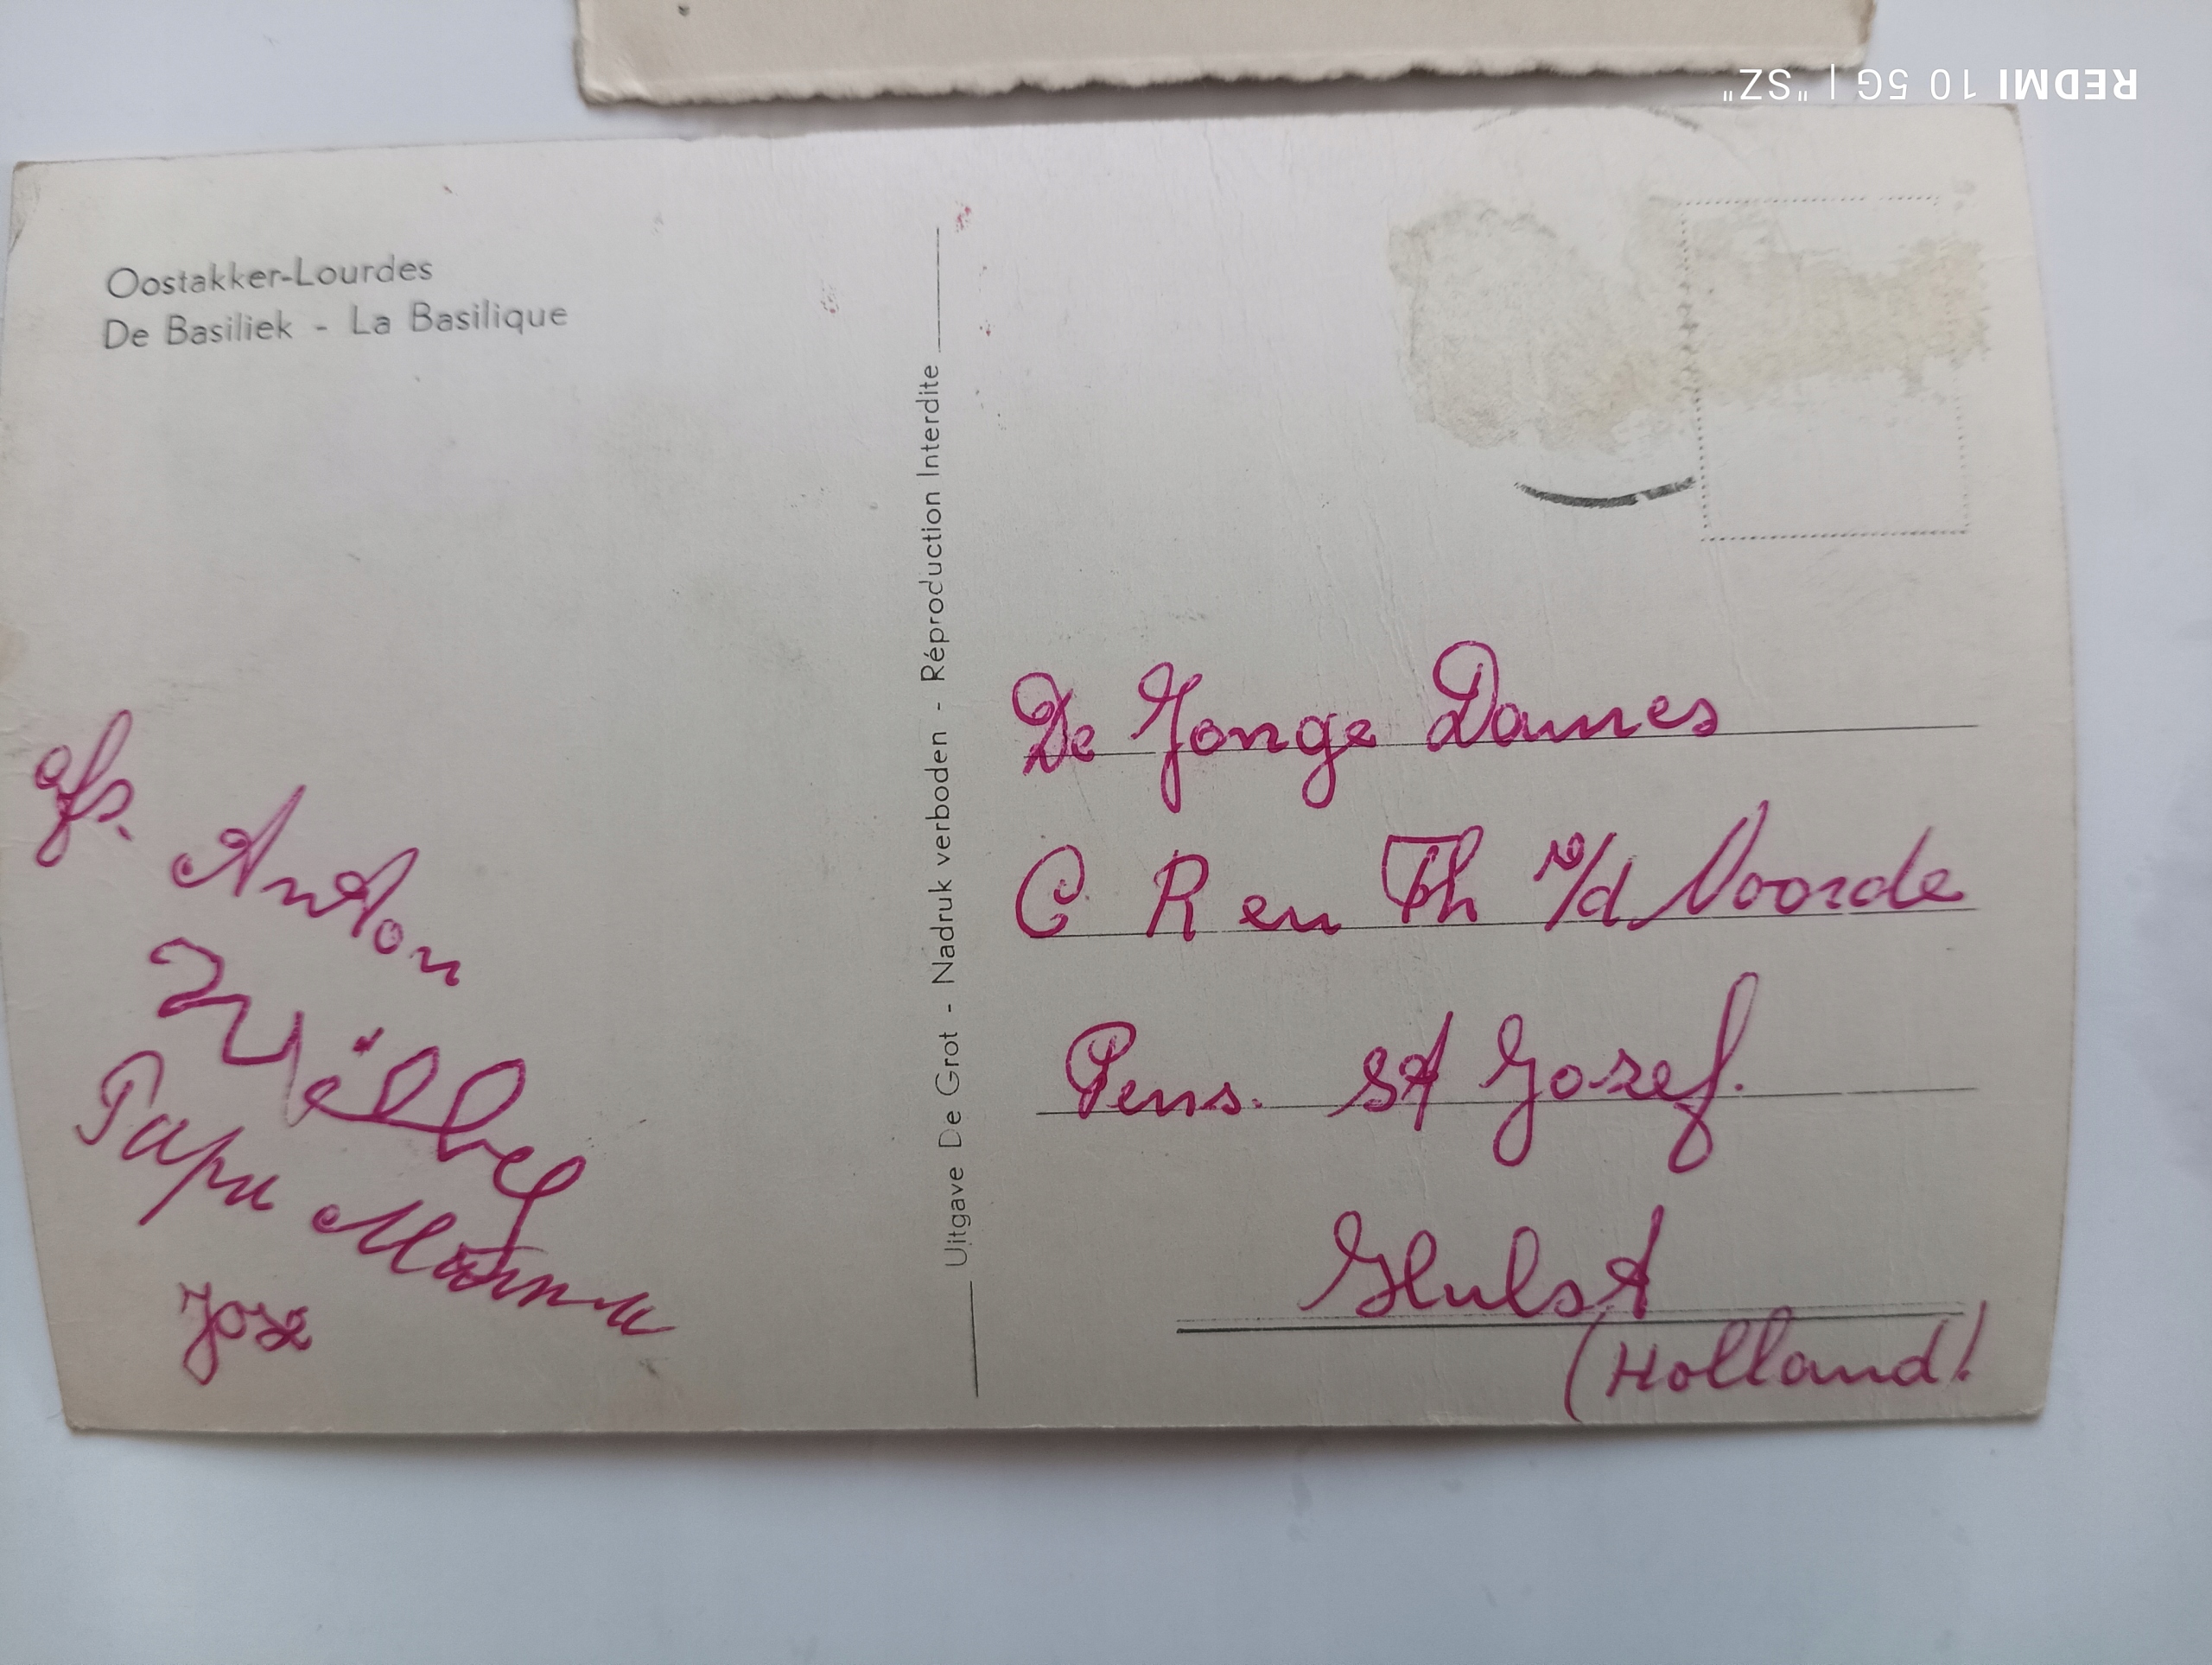 REDMI 10 5G | "SZ"
Oostakker-Lourdes
De Basiliek - La Basilique
Uitgave De Grot - Nadruk verboden - Réproduction Interdite
De Jonge Dames
C R en Th v/d Voorde
Pens. St Jozef.
Hulst
(Holland!
Anton
Papa Mama
José